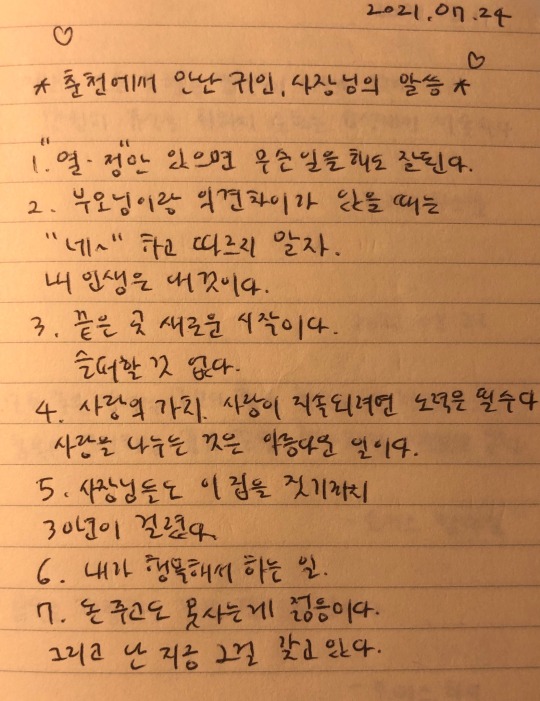 2021.07.24
* 춘천에서 만난 귀인, 사장님의 말씀 *
1. "열·정"만 있으면 무슨일을해도 잘된다.
2. 부모님이랑 의견차이가 있을 때는
"네~" 하고 따르지 말자.
내 인생은 내것이다.
3. 끝은 곧 새로운 시작이다.
슬퍼할 것 없다.
4. 사랑의 가치. 사랑이 지속되려면 노력은 필수다
사랑을 나누는 것은 아름다운 일이다.
5. 사장님들도 이 집을 짓기까지
30년이 걸렸다.
6. 내가 행복해서 하는 일.
7. 돈 주고도 못사는게 젊음이다.
그리고 난 지금 그걸 갖고 있다.